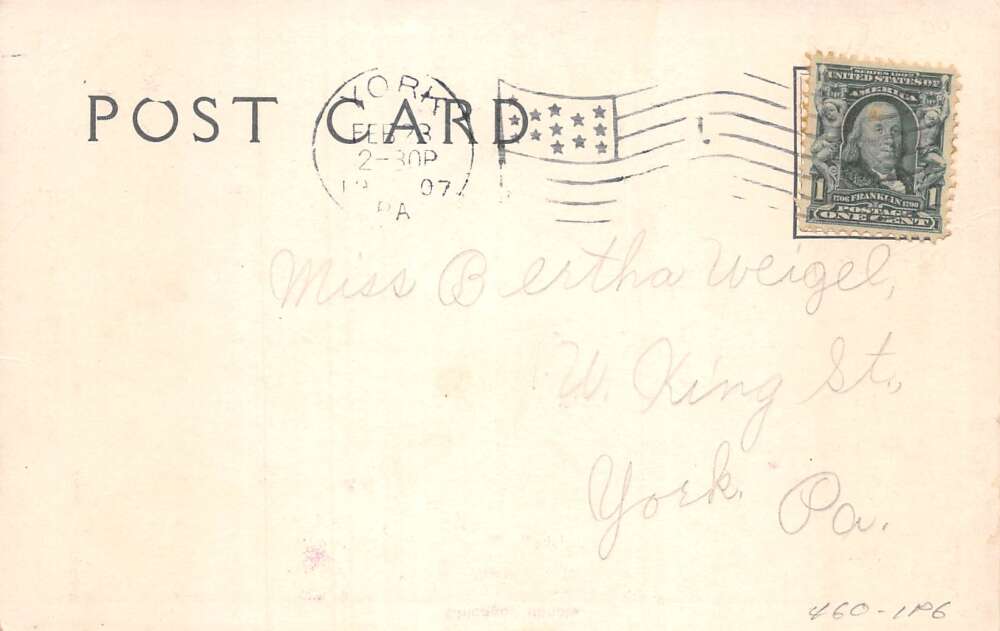 POST CARD
YORK
FEB 23
2-30P
19 07
PA
SERIES 1902
UNITED STATES OF
AMERICA
1 1
1706 FRANKLIN 1790
POSTAGE
ONE CENT
Miss Bertha Weigel,
W. King St.,
York. Pa.
460-1P6